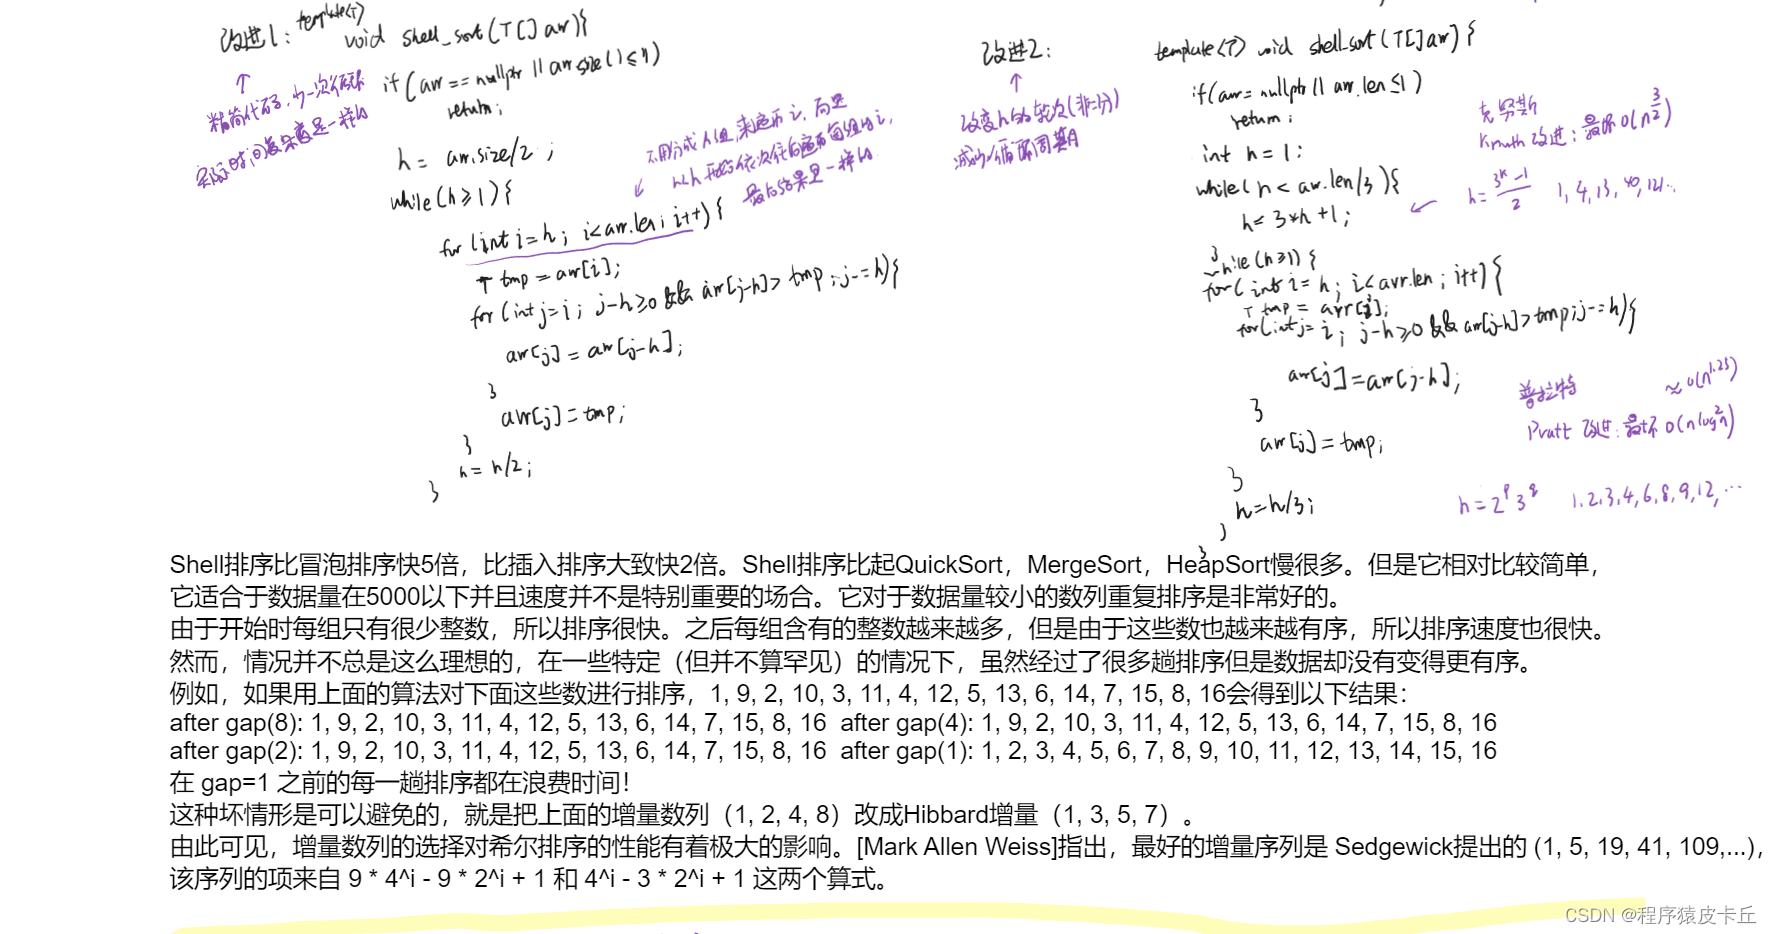 改进1: template<T>
void shell_sort(T[] arr){
if(arr == nullptr || arr.size() ≤ 1)
return;
h = arr.size/2;
while(h ≥ 1){
for(int i=h; i<arr.len; i++){
T tmp = arr[i];
for(int j=i; j-h≥0 && arr[j-h]> tmp; j-=h){
arr[j] = arr[j-h];
}
arr[j] = tmp;
}
h = h/2;
}
精简代码,少一次循环
实际时间复杂度是一样的
不用分成h组,来遍历i,而是
从h开始依次往后遍历每组的i,
最后结果是一样的
改进2:
改变h的轮次(非二分)
减少循环周期
template<T> void shell_sort(T[] arr){
if(arr= nullptr || arr.len ≤1)
return;
int h = 1;
while(h < arr.len/3){
h= 3*h+1;
}
while(h≥1){
for(int i= h; i<arr.len; i++){
T tmp = arr[i];
for(int j= i; j-h≥0 && arr[j-h]>tmp;j-=h){
arr[j]=arr[j-h];
}
arr[j]=tmp;
}
h=h/3;
}
克努斯
Knuth 改进:最坏 O(n^{3/2})
h= (3^k-1)/2 1, 4, 13, 40, 121...
普拉特 ≈O(n^{1.25})
Pratt 改进:最坏 O(n log²n)
h=2^p 3^q 1,2,3,4,6,8,9,12,...
Shell排序比冒泡排序快5倍，比插入排序大致快2倍。Shell排序比起QuickSort，MergeSort，HeapSort慢很多。但是它相对比较简单，
它适合于数据量在5000以下并且速度并不是特别重要的场合。它对于数据量较小的数列重复排序是非常好的。
由于开始时每组只有很少整数，所以排序很快。之后每组含有的整数越来越多，但是由于这些数也越来越有序，所以排序速度也很快。
然而，情况并不总是这么理想的，在一些特定（但并不算罕见）的情况下，虽然经过了很多趟排序但是数据却没有变得更有序。
例如，如果用上面的算法对下面这些数进行排序，1, 9, 2, 10, 3, 11, 4, 12, 5, 13, 6, 14, 7, 15, 8, 16会得到以下结果：
after gap(8): 1, 9, 2, 10, 3, 11, 4, 12, 5, 13, 6, 14, 7, 15, 8, 16 after gap(4): 1, 9, 2, 10, 3, 11, 4, 12, 5, 13, 6, 14, 7, 15, 8, 16
after gap(2): 1, 9, 2, 10, 3, 11, 4, 12, 5, 13, 6, 14, 7, 15, 8, 16 after gap(1): 1, 2, 3, 4, 5, 6, 7, 8, 9, 10, 11, 12, 13, 14, 15, 16
在 gap=1 之前的每一趟排序都在浪费时间！
这种坏情形是可以避免的，就是把上面的增量数列（1, 2, 4, 8）改成Hibbard增量（1, 3, 5, 7）。
由此可见，增量数列的选择对希尔排序的性能有着极大的影响。[Mark Allen Weiss]指出，最好的增量序列是 Sedgewick提出的 (1, 5, 19, 41, 109,...)，
该序列的项来自 9 * 4^i - 9 * 2^i + 1 和 4^i - 3 * 2^i + 1 这两个算式。
CSDN @程序猿皮卡丘